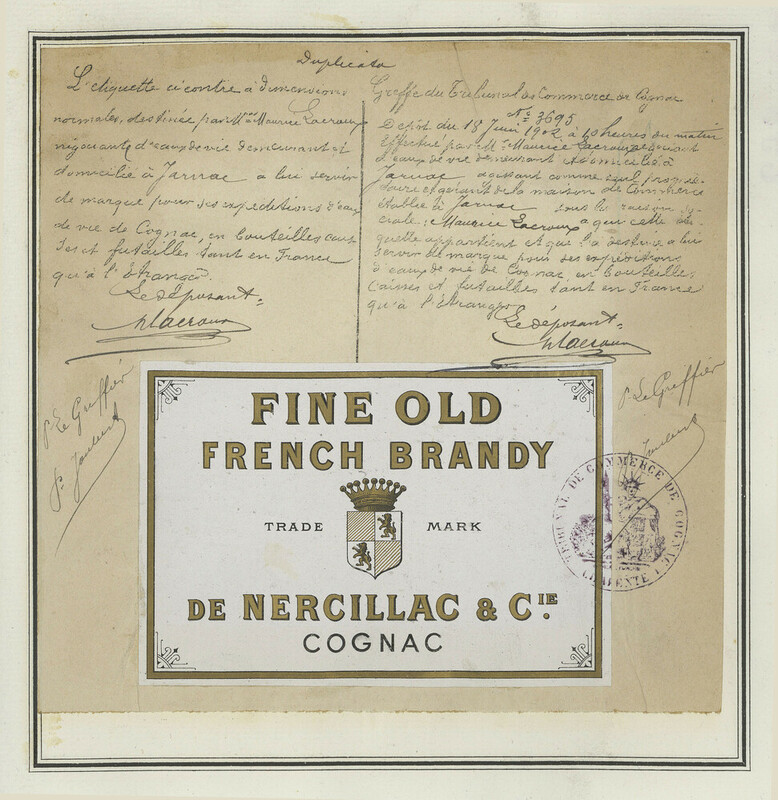 Duplicata
L'étiquette ci contre à dimensions
normales, destinée par Mr Maurice Lacroux
négociant d'eaux de vie demeurant et
domicilié à Jarnac a lui servir
de marque pour ses expéditions d'eaux
de vie de Cognac, en bouteilles cais
ses et futailles tant en France
qu'à l'étranger
Le déposant
MLacroux
P. Le Greffier
Greffe du Tribunal de Commerce de Cognac
No 3695
Dépôt du 18 Juin 1902 à 10 heures du matin
Effectué par Mr Maurice Lacroux négociant
d'eaux de vie demeurant et domicilié à
Jarnac agissant comme seul proprié
taire et gérant de la maison de Commerce
établie à Jarnac sous la raison so
ciale: Maurice Lacroux a qui cette éti
quette appartient et qui l'a destinée a lui
servir de marque pour ses expéditions
d'eaux de vie de Cognac, en bouteilles
caisses et futailles tant en France
qu'à l'étranger
Le déposant
MLacroux
P. Le Greffier
FINE OLD
FRENCH BRANDY
TRADE MARK
DE NERCILLAC & CIE.
COGNAC
TRIBUNAL DE COMMERCE DE COGNAC
CHARENTE